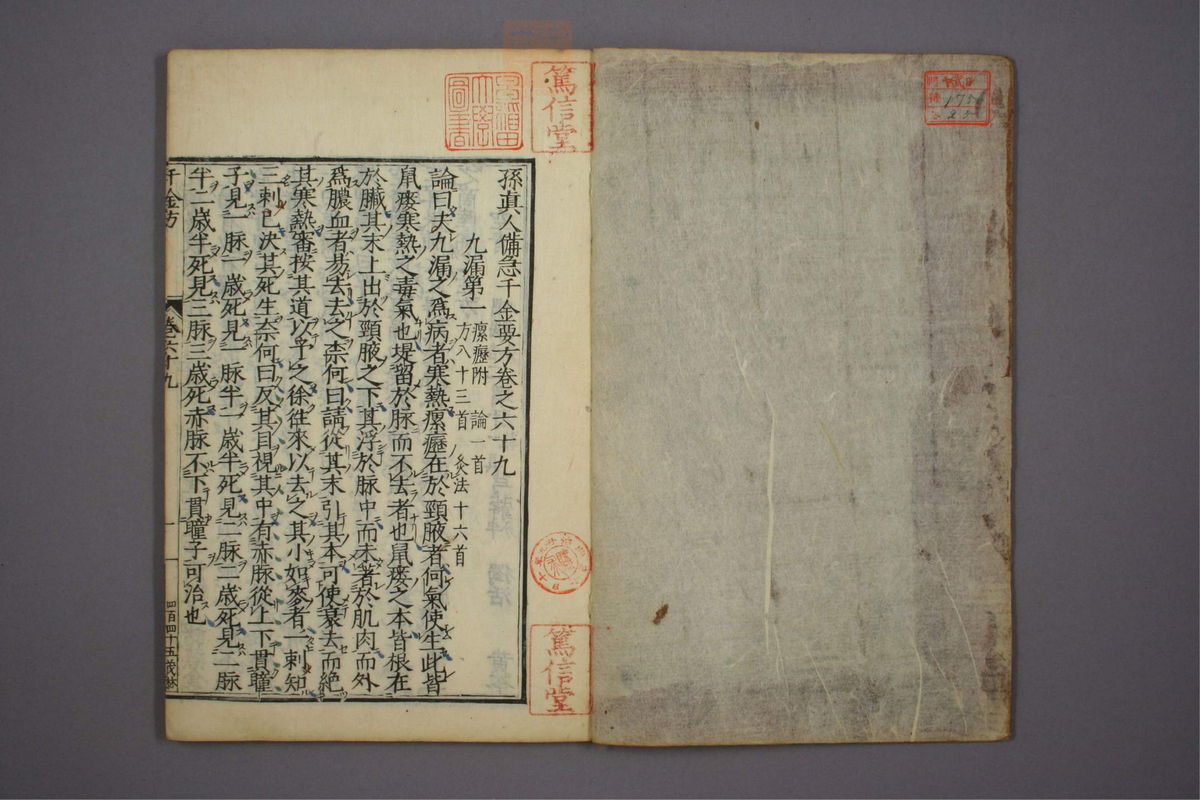 孫真人備急千金要方卷之六十九
九漏第一 瘰癧附 論一首 方八十三首 灸法十六首
論曰夫九漏之爲病者寒熱瘰癧在於頸腋者何氣使生此皆
鼠瘻寒熱之毒氣也堤留於脉而不去者也鼠瘻之本皆根在
於臟其末上出於頸腋之下其浮於脉中而未著於肌肉而外
爲膿血者易去去之柰何曰請從其末引其本可使衰去而絕
其寒熱審按其道以予之徐往來以去之其小如麥者一刺知
三刺已決其死生柰何曰反其目視其中有赤脉從上下貫瞳
子見一脉一歲死見一脉半一歲半死見二脉二歲死見二脉
半二歲半死見三脉三歲死赤脉不下貫瞳子可治也
千金方 卷六十九 一 四百四十五
篤信堂
早稲田大學圖書
篤信堂